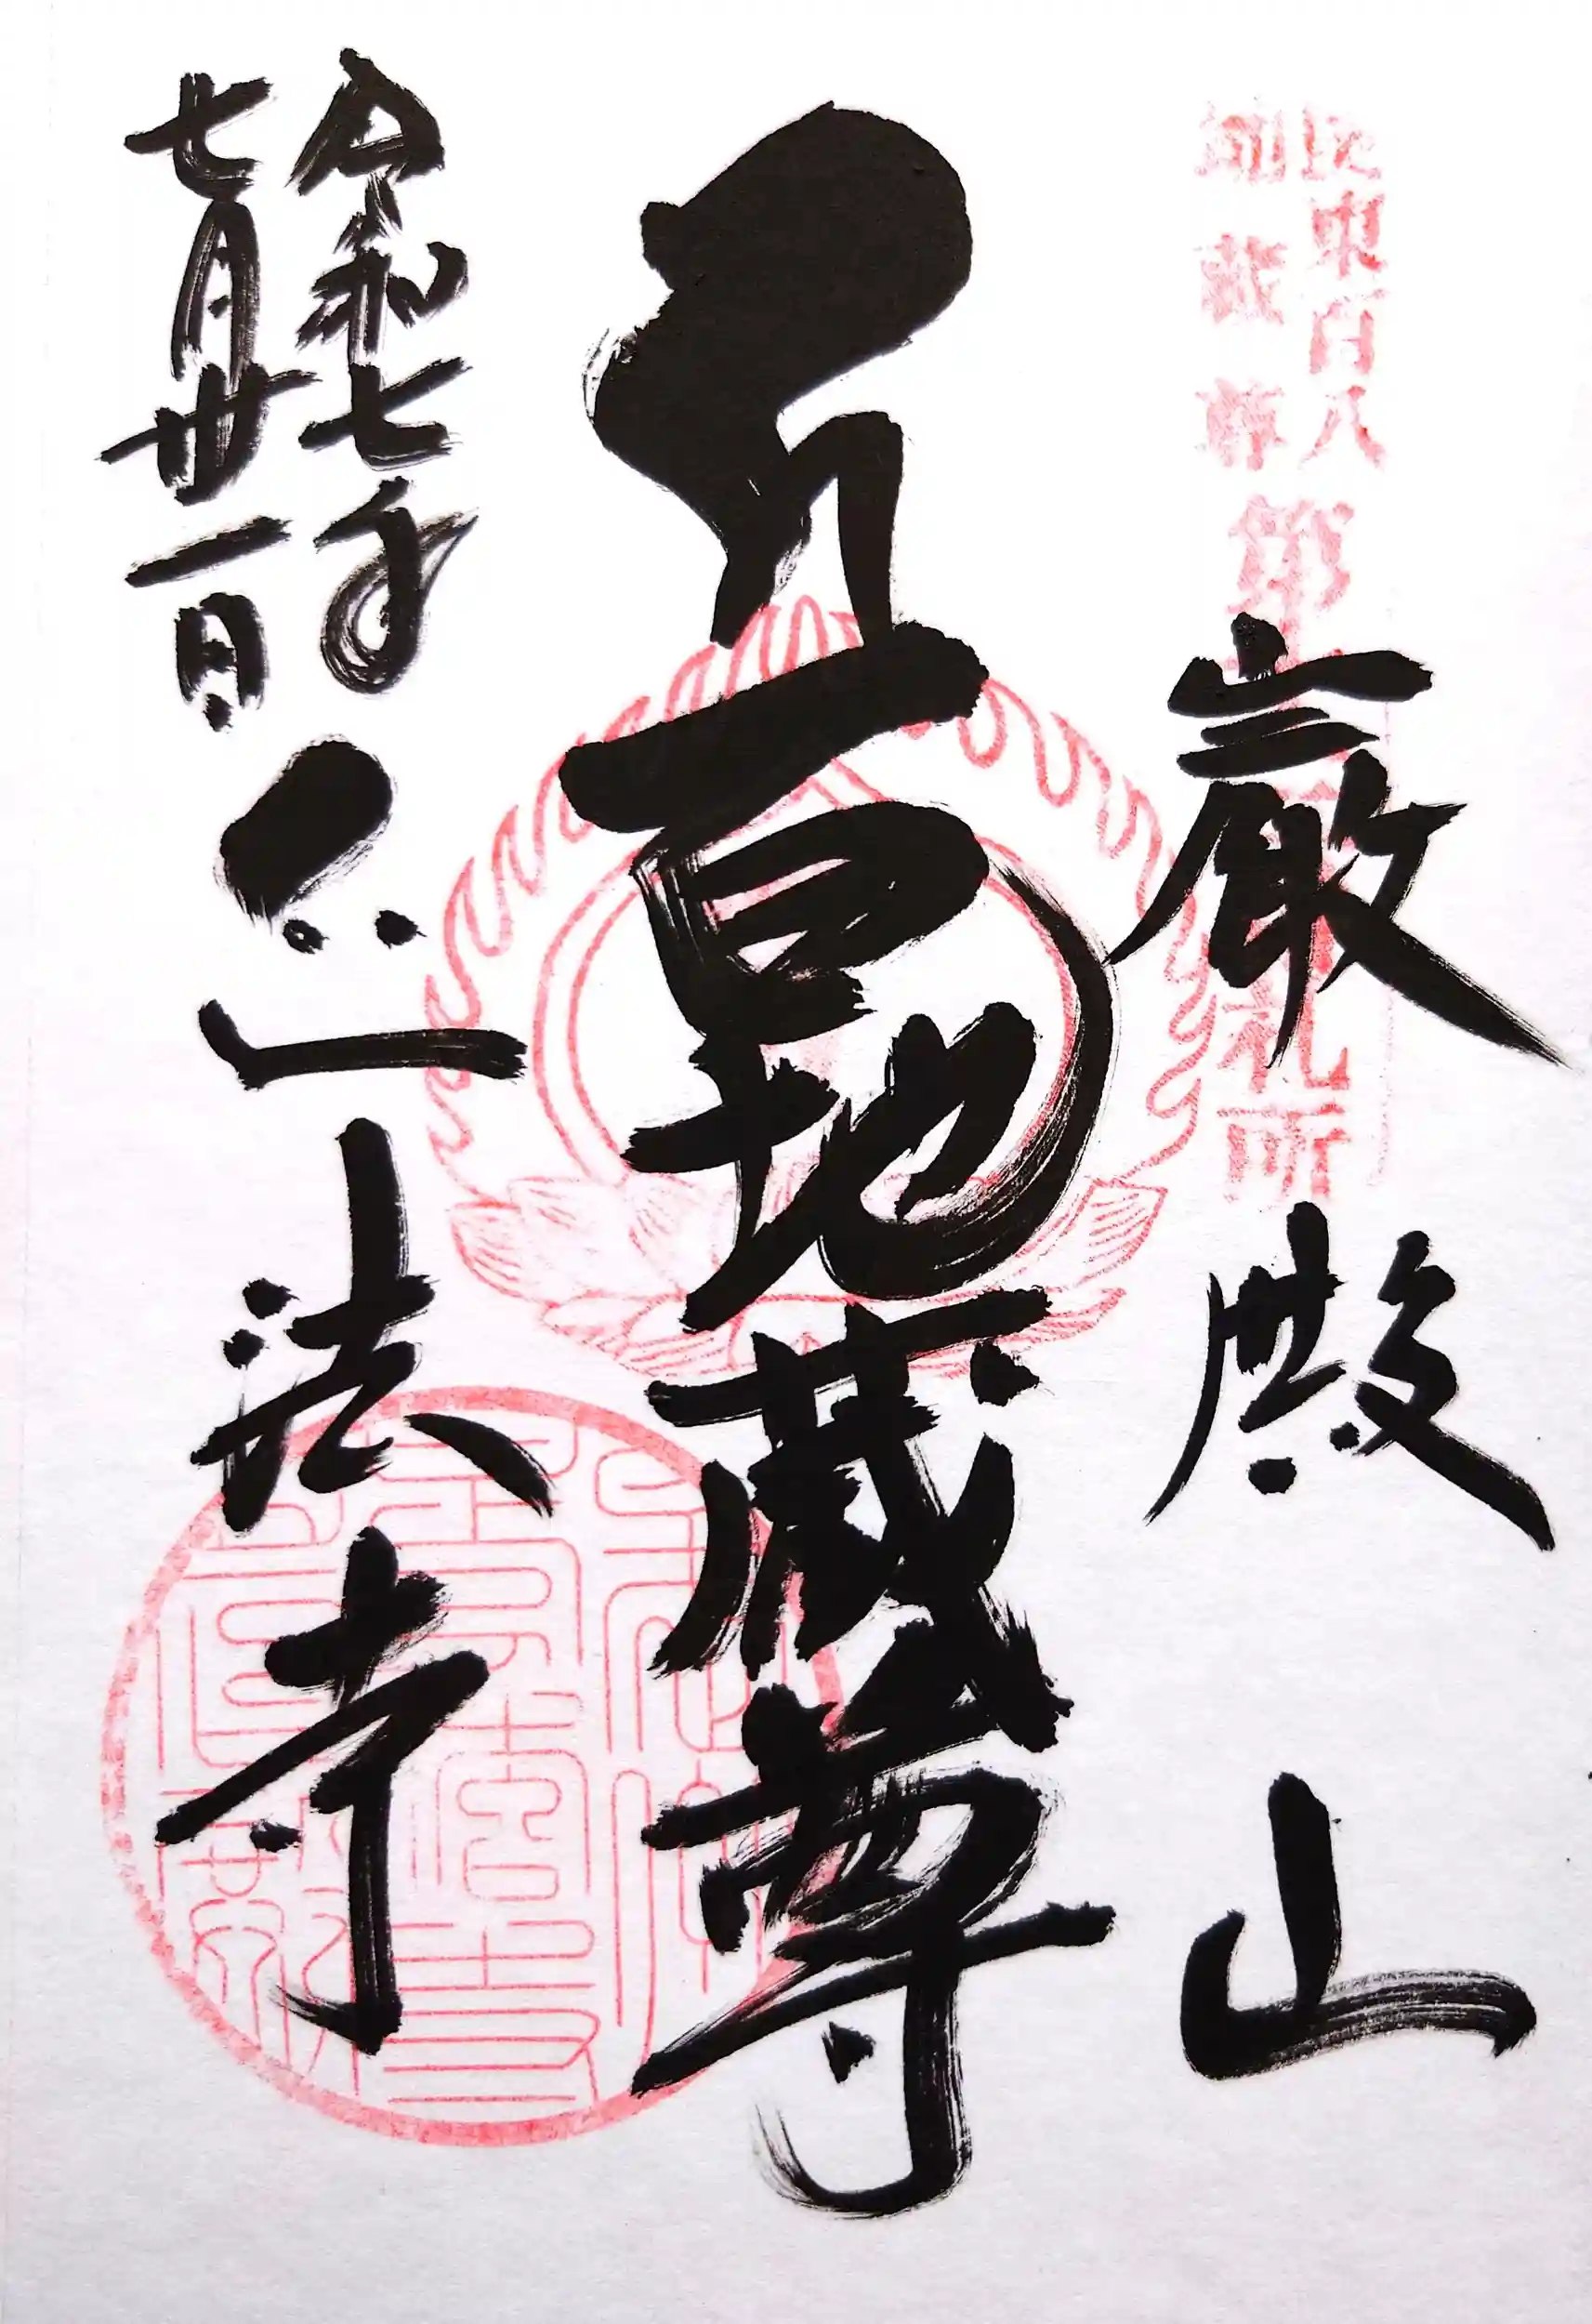 関東百八
地蔵尊
第
札所
巌殿山
五百地蔵尊
令和七年
七月廿一日
正法寺